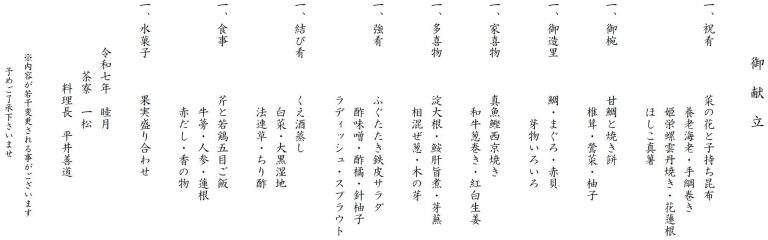 御献立
一、祝肴　菜の花と子持ち昆布
養老海老・手綱巻き
姫栄螺雲丹焼き・花蓮根
ほしこ真薯
一、御椀　甘鯛と焼き餅
椎茸・鶯菜・柚子
一、御造里　鯛・まぐろ・赤貝
芽物いろいろ
一、家喜物　真魚鰹西京焼き
和牛葱巻き・紅白生姜
一、多喜物　淀大根・鮟肝旨煮・芽蕪
相混ぜ葱・木の芽
一、強肴　ふぐたたき鉄皮サラダ
酢味噌・酢橘・針柚子
ラディッシュ・スプラウト
一、結び肴　くえ酒蒸し
白菜・大黒湿地
法連草・ちり酢
一、食事　芹と若鶏五目ご飯
牛蒡・人参・蓮根
赤だし・香の物
一、水菓子　果実盛り合わせ
令和七年　睦月
茶寮　一松
料理長　平井善道
※内容が若干変更される事がございます
予めご了承下さいませ